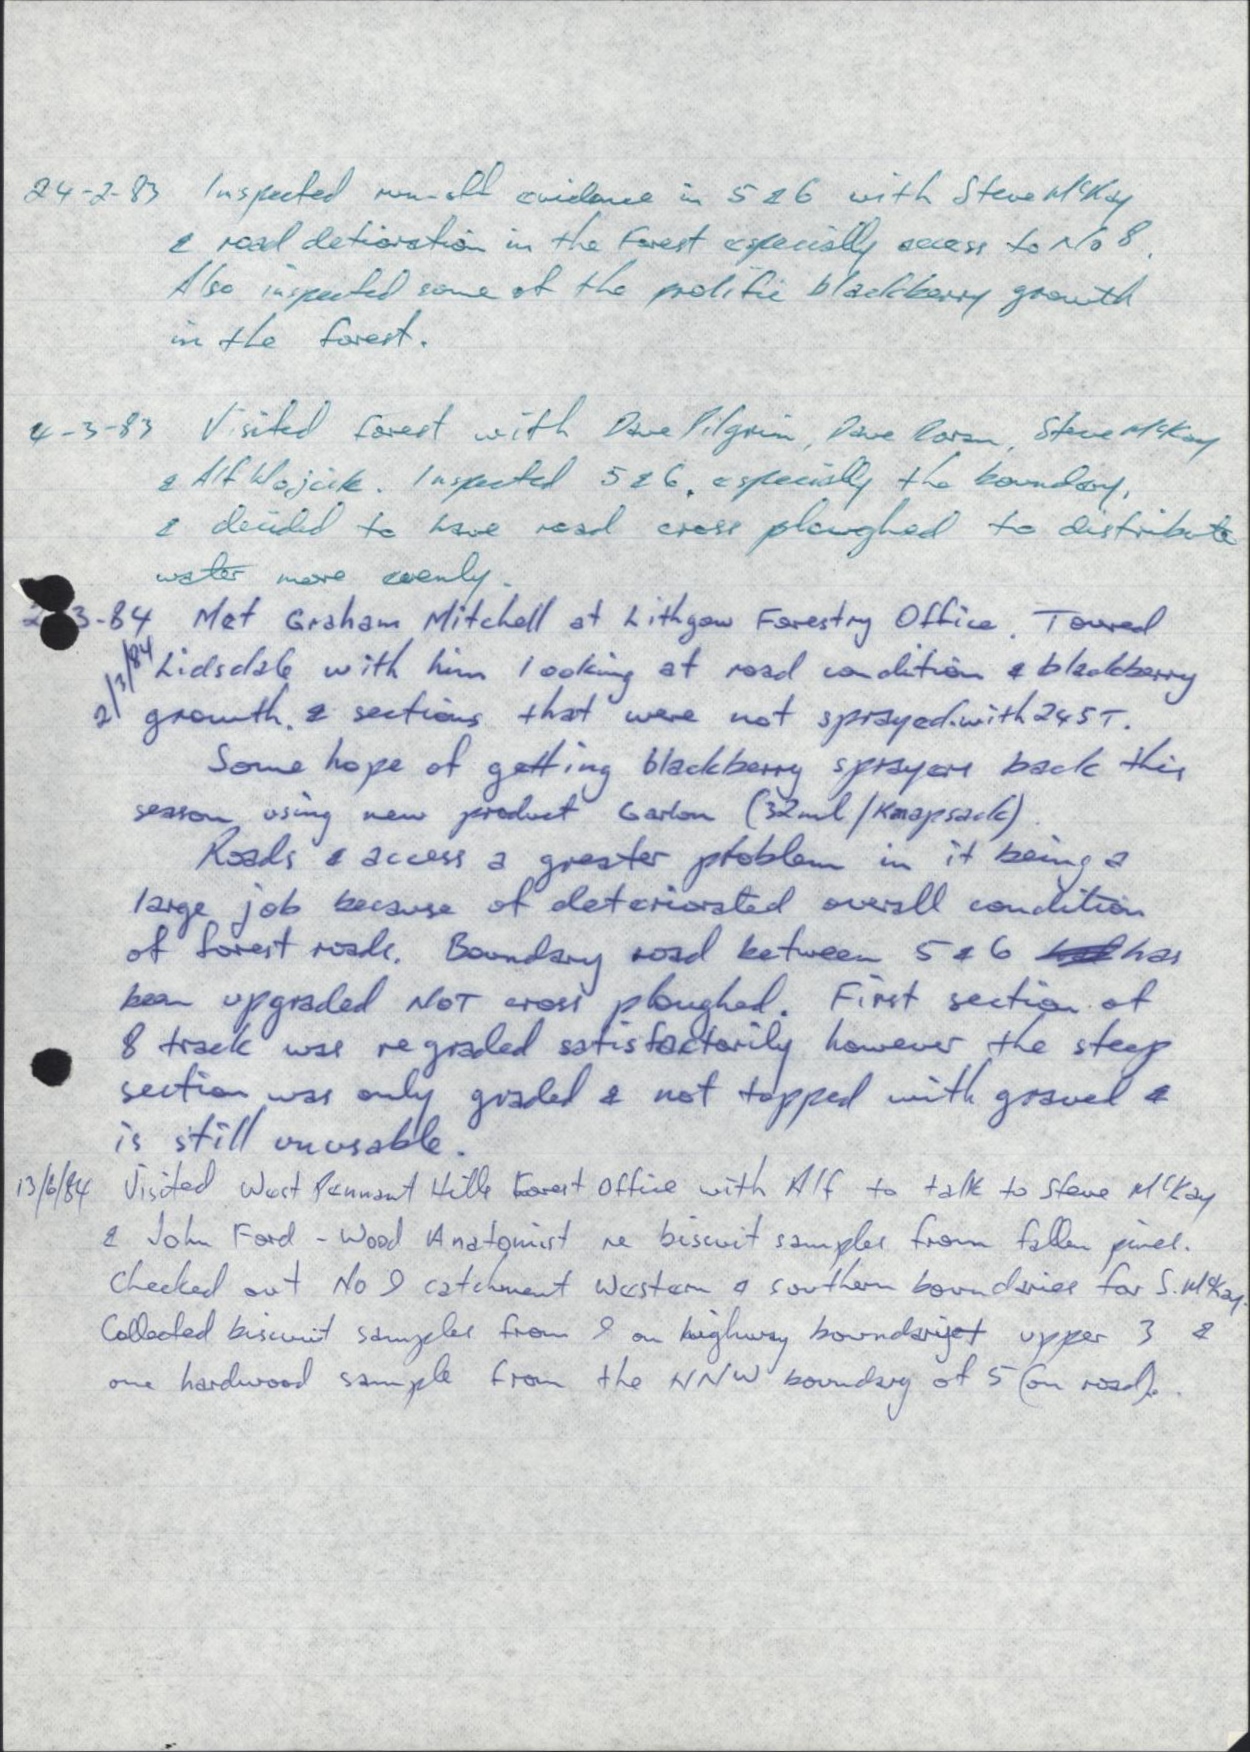 24-2-83 Inspected run-off evidence in 5 & 6 with Steve McKay
& road detioration in the Forest especially access to No 8.
Also inspected some of the prolific blackberry growth
in the forest.
4-3-83 Visited forest with Dave Pilgrim, Dave Doran, Steve McKay
& Alf Wojcik. Inspected 5 & 6, especially the boundary,
& decided to have road cross ploughed to distribute
water more evenly.
3-84 Met Graham Mitchell at Lithgow Forestry Office. Toured
2/3/84 Lidsdale with him looking at road condition & blackberry
growth. & sections that were not sprayed with 245T.
Some hope of getting blackberry sprayers back this
season using new product Garlon (32ml/Knapsack)
Roads & access a greater problem in it being a
large job because of deteriorated overall condition
of forest roads. Boundary road between 5 & 6 has
been upgraded NOT cross ploughed. First section of
8 track was regraded satisfactorily however the steep
section was only graded & not topped with gravel &
is still unusable.
13/6/84 Visited West Pennant Hills Forest Office with Alf to talk to Steve McKay
& John Ford - Wood Anatomist re biscuit samples from fallen pines.
Checked out No 9 catchment Western & southern boundaries for S. McKay.
Collected biscuit samples from 9 on highway boundary upper 3 &
one hardwood sample from the NNW boundary of 5 (on road).